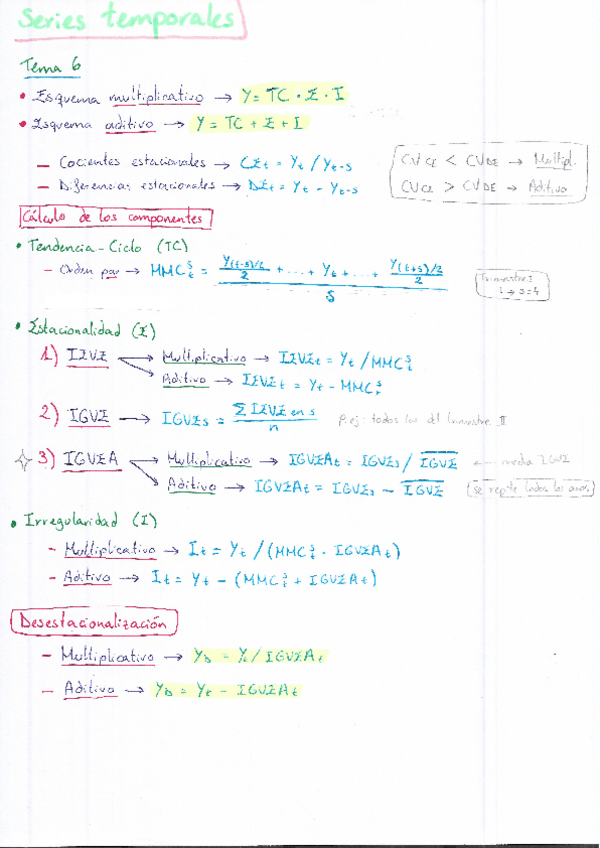 Series temporales
Tema 6
• Esquema multiplicativo → Y = TC · E · I
• Esquema aditivo → Y = TC + E + I
– Cocientes estacionales → CEt = Yt / Yt-s
– Diferencias estacionales → DEt = Yt - Yt-s
CVCE < CVDE → Multipl.
CVCE > CVDE → Aditivo
Cálculo de los componentes
• Tendencia-Ciclo (TC)
– Orden par → MMC^s_t = (Y(t-s)/2 / 2 + ... + Yt + ... + Y(t+s)/2 / 2) / S
Trimestres
↳ s=4
• Estacionalidad (E)
1) IEVE → Multiplicativo → IEVEt = Yt / MMC^s_t
→ Aditivo → IEVEt = Yt - MMC^s_t
2) IGVE → IGVEs = Σ IEVE en s / n p.ej: todos los del trimestre II
3) IGVEA → Multiplicativo → IGVEAt = IGVEs / IGVE ← media IGVE
→ Aditivo → IGVEAt = IGVEs - IGVE (se repite todos los años)
• Irregularidad (I)
– Multiplicativo → It = Yt / (MMC^s_t · IGVEAt)
– Aditivo → It = Yt - (MMC^s_t + IGVEAt)
Desestacionalización
– Multiplicativo → YD = Yt / IGVEAt
– Aditivo → YD = Yt - IGVEAt